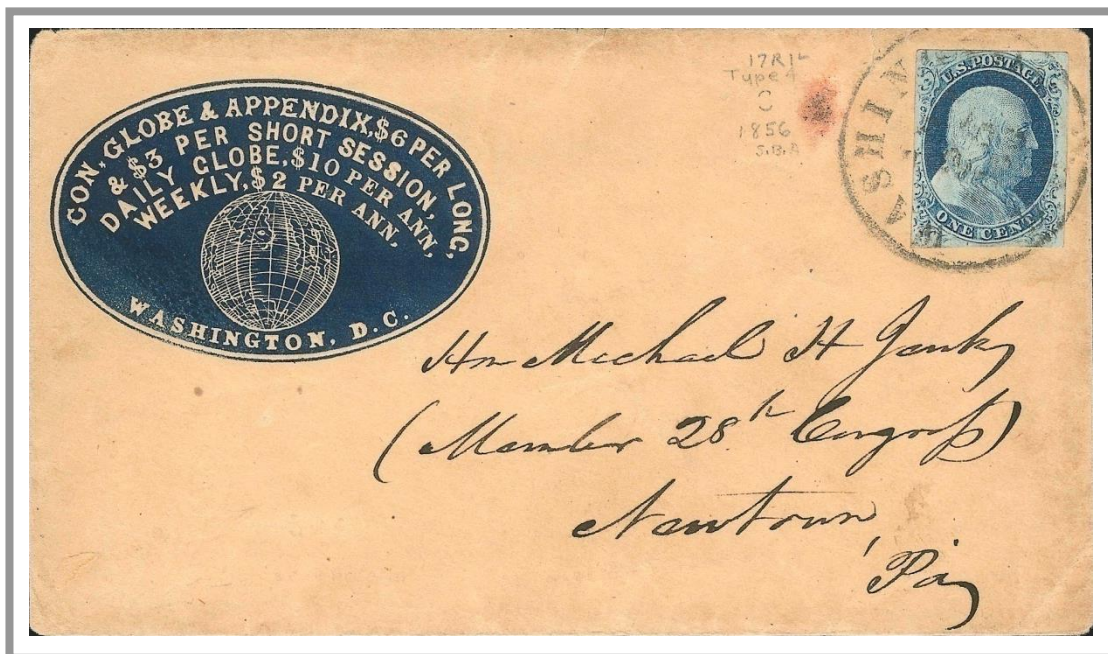 CON, GLOBE & APPENDIX, $6 PER LONG,
& $3 PER SHORT SESSION,
DAILY GLOBE, $10 PER ANN,
WEEKLY, $2 PER ANN,
WASHINGTON, D.C.
17R1L
Type 4
C
1856
S.B.A
WASHIN
U.S. POSTAGE
ONE CENT
Hon Michael H Jenks
(Member 28th Congress)
Newtown
Pa